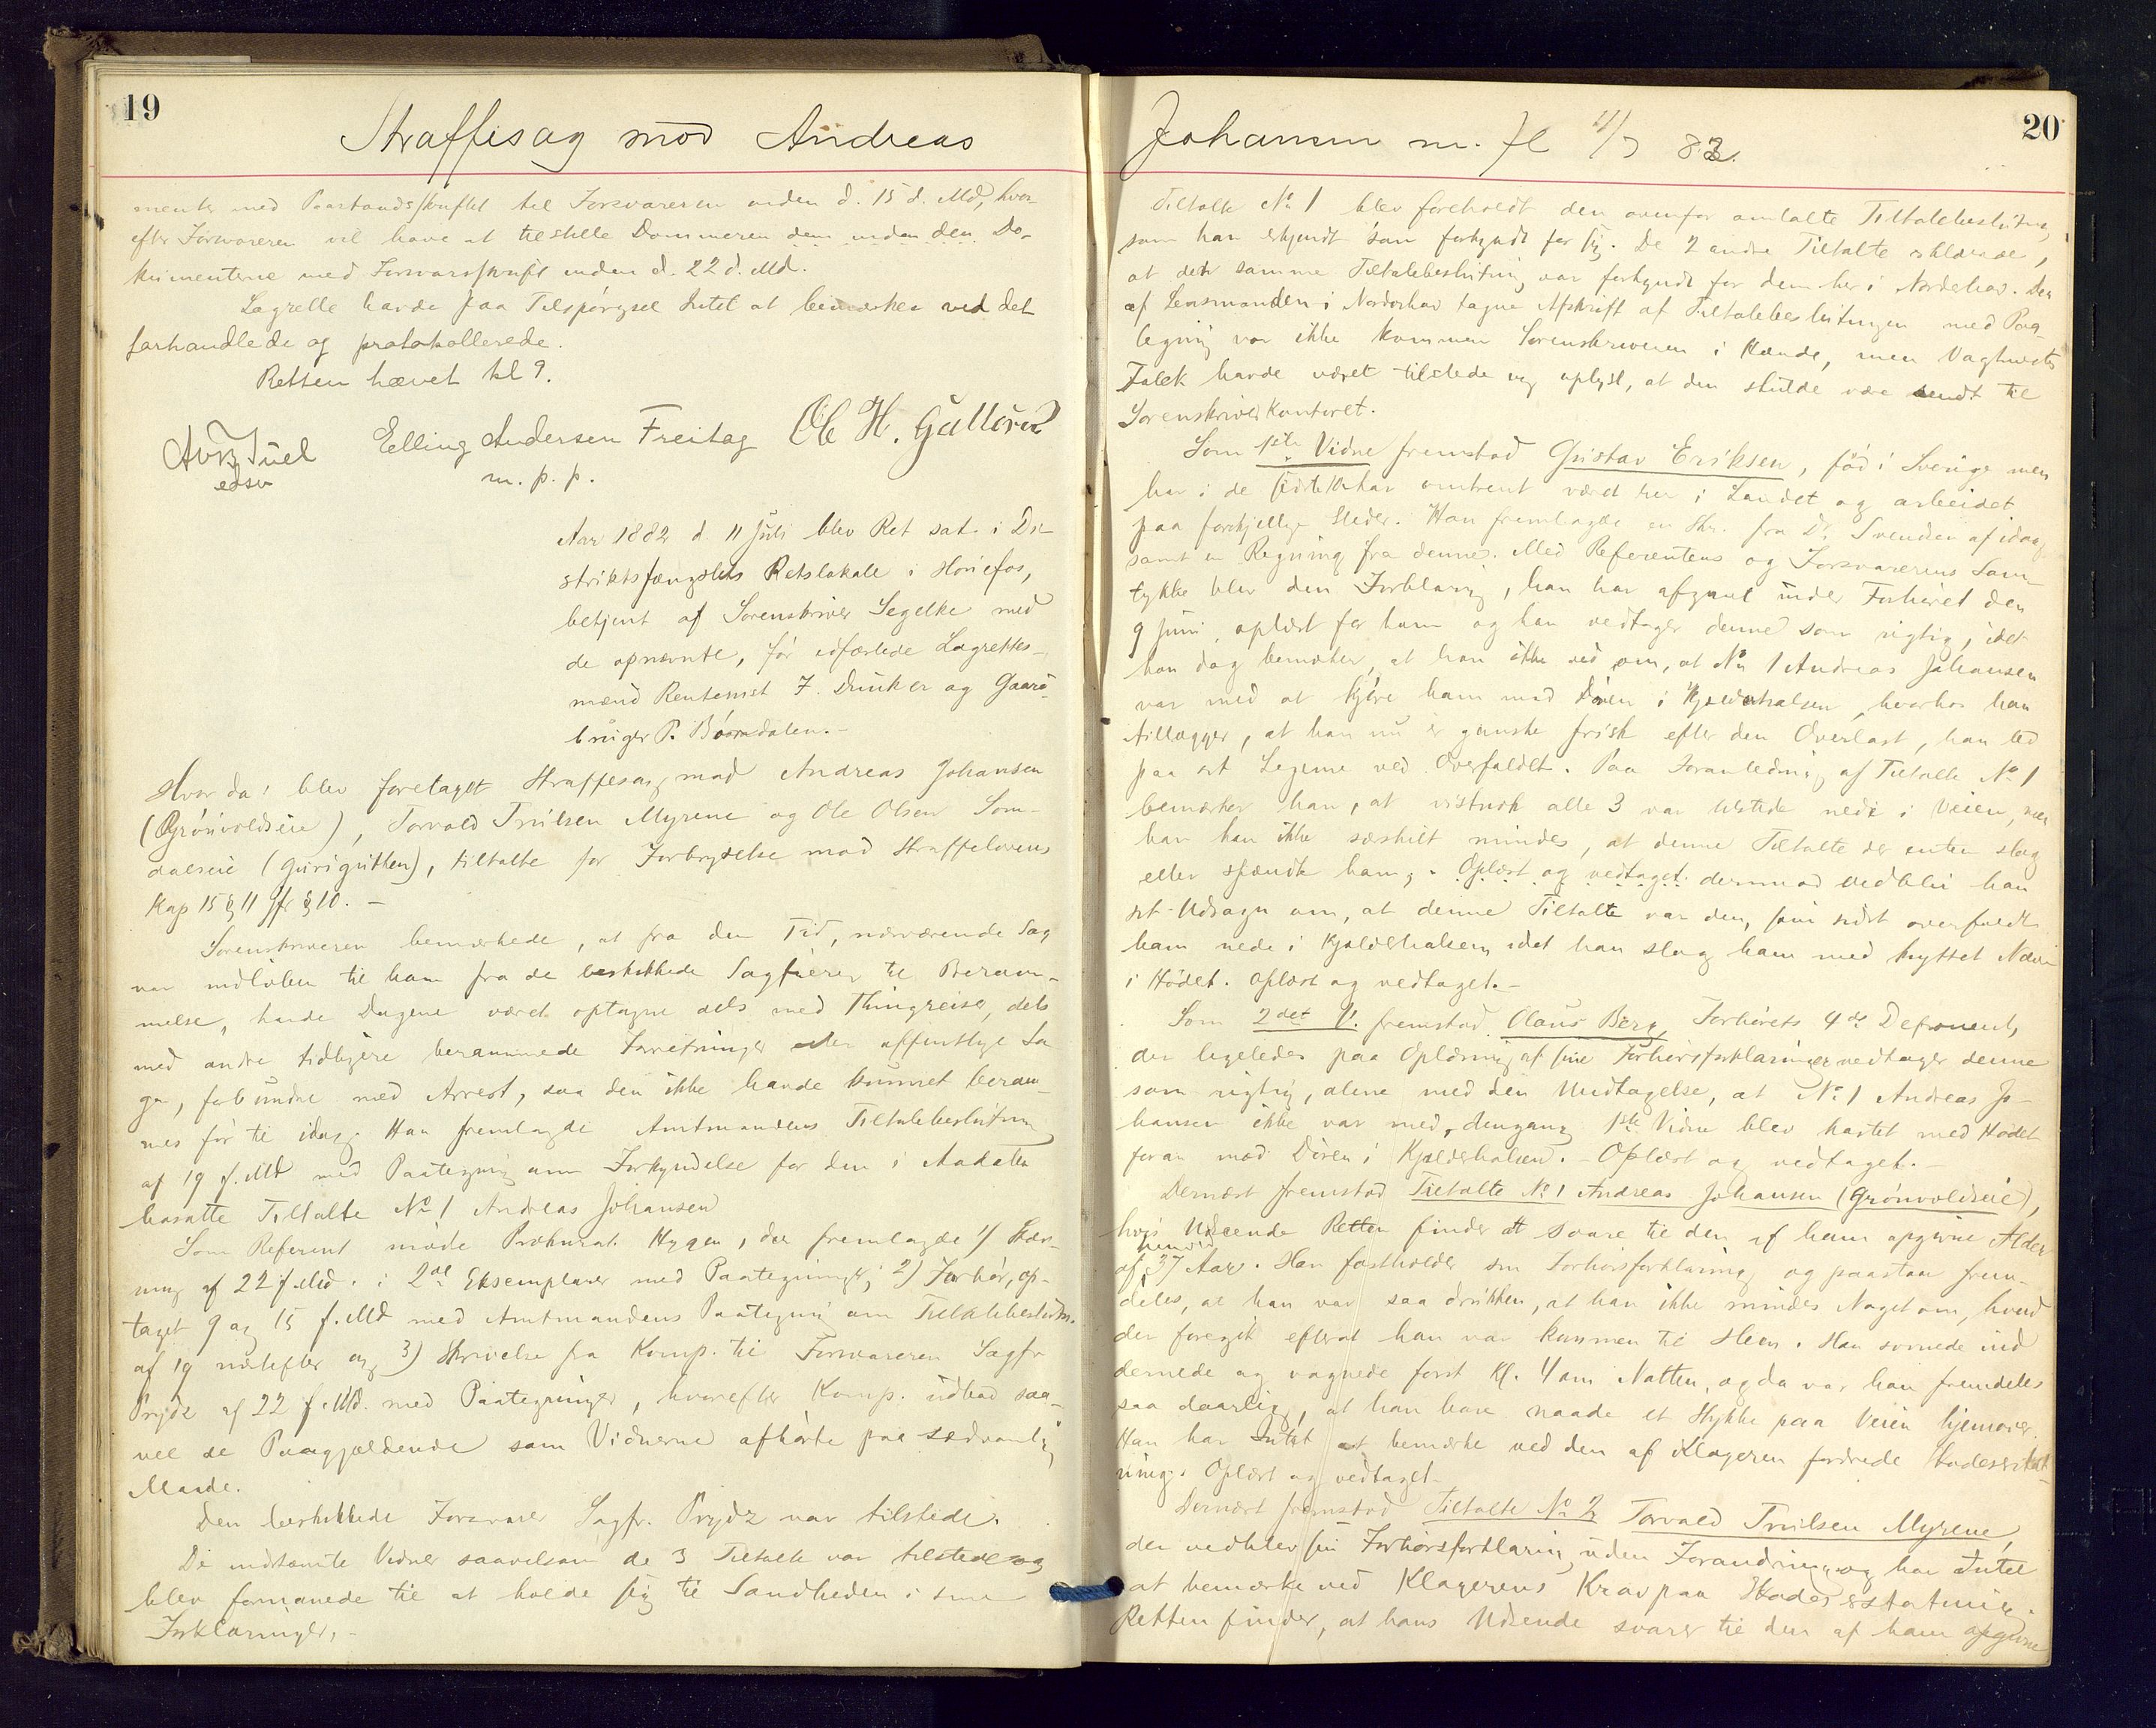 19
Straffesag mod Andreas
menter med Paastandsskriftet til Forsvareren inden d. 15 d. Md, hvor-
efter Forsvareren vil have at tilstille Dommeren dem inden den Do-
kumenterne med Forsvarsskrift inden d. 22 d. Md.
Lagrette havde paa Tilspørgsel Intet at bemærke ved det
forhandlede og protokollerede.
Retten hævet kl 9.
Juel Elling Andersen Freitag Ole H. Gulloren
edsv m. p. p.
Aar 1882 d. 11 Juli blev Ret sat i Di-
striktsfængslets Retslokale i Hønefos,
betjent af Sorenskriver Segelke med
de opnævnte, før edfæstede Lagrettes-
mænd Rentenist F. Drinker og Gaard-
bruger P. Børndalen.-
Hvorda: blev foretaget Straffesag mod Andreas Johansen
(Grønvoldseie), Torvald Trulsen Myrene og Ole Olsen Som-
dalseie (Gurigutten), tiltalte for Forbrydelse mod Straffelovens
Kap 15 § 11 jfr § 10. -
Sorenskriveren bemærkede, at fra den Tid, nærværende Sag
var indløben til ham fra de beskikkede Sagfører til Beram-
melse, havde Dagene været optagne dels med Thingreiser, dels
med andre tidligere berammede Forretninger eller offentlige Sa
ger, forbundne med Arrest, saa den ikke havde kunnet beram-
mes før til idag. Han fremlagde Amtmandens Tiltalebeslutning
af 19 f. Md med Paategning om Forkyndelse for den i Aadalen
bosatte Tiltalte No 1 Andreas Johansen
Som Referent møde Prokurat. Hygen, der fremlagde 1) Stæv-
ning af 22 f. Md. i 2de Eksemplarer med Paategninger; 2) Forhør, op-
taget 9 og 15 f. Md med Amtmandens Paategning om Tiltalebeslutn.
af 19 næstefter og 3) Skrivelse fra Komp. til Forsvareren Sagfr
Prydz af 22 f. Md. med Paategninger, hvorefter Komp. udbad saa-
vel de Paagjældende som Vidnerne afhørte paa sedvanlig
Maade.
Den beskikkede Forsvarer Sagfr. Prydz var tilstede.
De indstævnte Vidner saavelsom de 3 Tiltalte var tilstede og
blev formanede til at holde sig til Sandheden i sine
Forklaringer.-
Johansen m. fl 11/7 82.
20
Tiltalte No 1 blev foreholdt den ovenfor omtalte Tiltalebeslutning,
som han erkjendt som forkyndt for sig. De 2 andre Tiltalte erklærede,
at den samme Tiltalebeslutning var forkyndt for dem her i Norderhov. Den
af Lensmanden i Norderhov tagne Afskrift af Tiltalebeslutningen med Paa-
tegning var ikke kommen Sorenskriveren i Hænde, men Vagtmester
Falck havde været tilstede og oplyst, at den skulde være sendt til
Sorenskriverkontoret.
Som 1ste Vidne fremstod Gustav Eriksen, fød i Sverige men
har i de sidste Aar omtrent været her i Landet og arbeidet
paa forskjellige Steder. Han fremlagde en Skr. fra Dr. Svendsen af idag
samt en Regning fra denne. Med Referentens og Forsvarerens Sam-
tykke blev den Forklaring, han har afgivet under Forhøret den
9 Juni, oplæst for ham og han vedtager denne som rigtig, idet
han dog bemærker, at han ikke ved om, at No 1 Andreas Johansen
var med at kjøre ham mod Døren i Kjælderhalsen, hvorhos han
tillægger, at han nu er ganske frisk efter den Overlast, han led
paa sit Legeme ved Overfaldet. Paa Foranledning af Tiltalte No 1
bemærker han, at vistnok alle 3 var tilstede nede i Veien, men
han kan ikke særskilt mindes, at denne Tiltalte der enten slog
eller spændte ham. Oplæst og vedtaget. dermod vedblev han
sit Udsagn om, at denne Tiltalte var den, som sidst overfaldt
ham nede i Kjælderhalsen idet han slog ham med knyttet Næve
i Hodet. Oplæst og vedtaget.-
Som 2det V. fremstod Olaus Berg, Forhørets 4de Deponent,
der ligeledes paa Oplæsning af sine Forhørsforklaringer vedtager denne
som rigtig, alene med den Undtagelse, at No 1 Andreas Jo-
hansen ikke var med, dengang 1ste Vidne blev kastet med Hodet
foran mod Døren i Kjælderhalsen. - Oplæst og vedtaget.-
Dernæst fremstod Tiltalte No 1 Andreas Johansen (Grønvoldseie),
hvis Udseende Retten finder at svare til den af ham opgivne Alder
af henved 37 Aar. Han fastholder sin Forhørsforklaring og paastaar frem-
deles, at han var saa drukken, at han ikke mindes Noget om, hvad
der foregik efterat han var kommen til Heen. Han sovnede ind
dernede og vagnede først Kl. 4 om Natten, og da var han fremdeles
saa daarlig, at han bare naade et Stykke paa Veien hjemover.
Han har Intet at bemærke ved den af Klageren fordrede Skadeserstat-
ning. Oplæst og vedtaget.-
Dernæst fremstod Tiltalte No 2 Torvald Trulsen Myrene,
der vedblev sin Forhørsforklaring uden Forandring og har Intet
at bemærke ved Klagerens Krav paa Skadeserstatning.
Retten finder, at hans Udseende svarer til den af ham opgivne